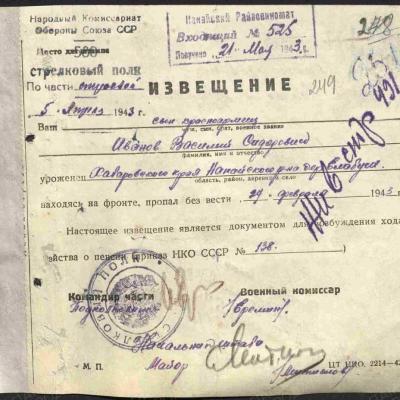 Народный Комиссариат
Обороны Союза ССР
Нанайский Райвоенкомат
Входящий № 525
Получено 21 Мая 1943 г.
248
Место
стрелковый полк
По части
249
ИЗВЕЩЕНИЕ
5 Апреля 1943 г.
Ваш сын красноармеец
Иванов Василий Сидорович
фамилия, имя и отчество
уроженец Хабаровского края Нанайского р-на дер.
область, район, деревня, село
находясь на фронте, пропал без вести 27 февраля 1943
Настоящее извещение является документом для возбуждения хода-
тайства о пенсии (приказ НКО СССР № 138.)
Командир части
Военный комиссар
Подполковник
Начальник штаба
М. П.
Майор
ЦТ НКО. 2214—4